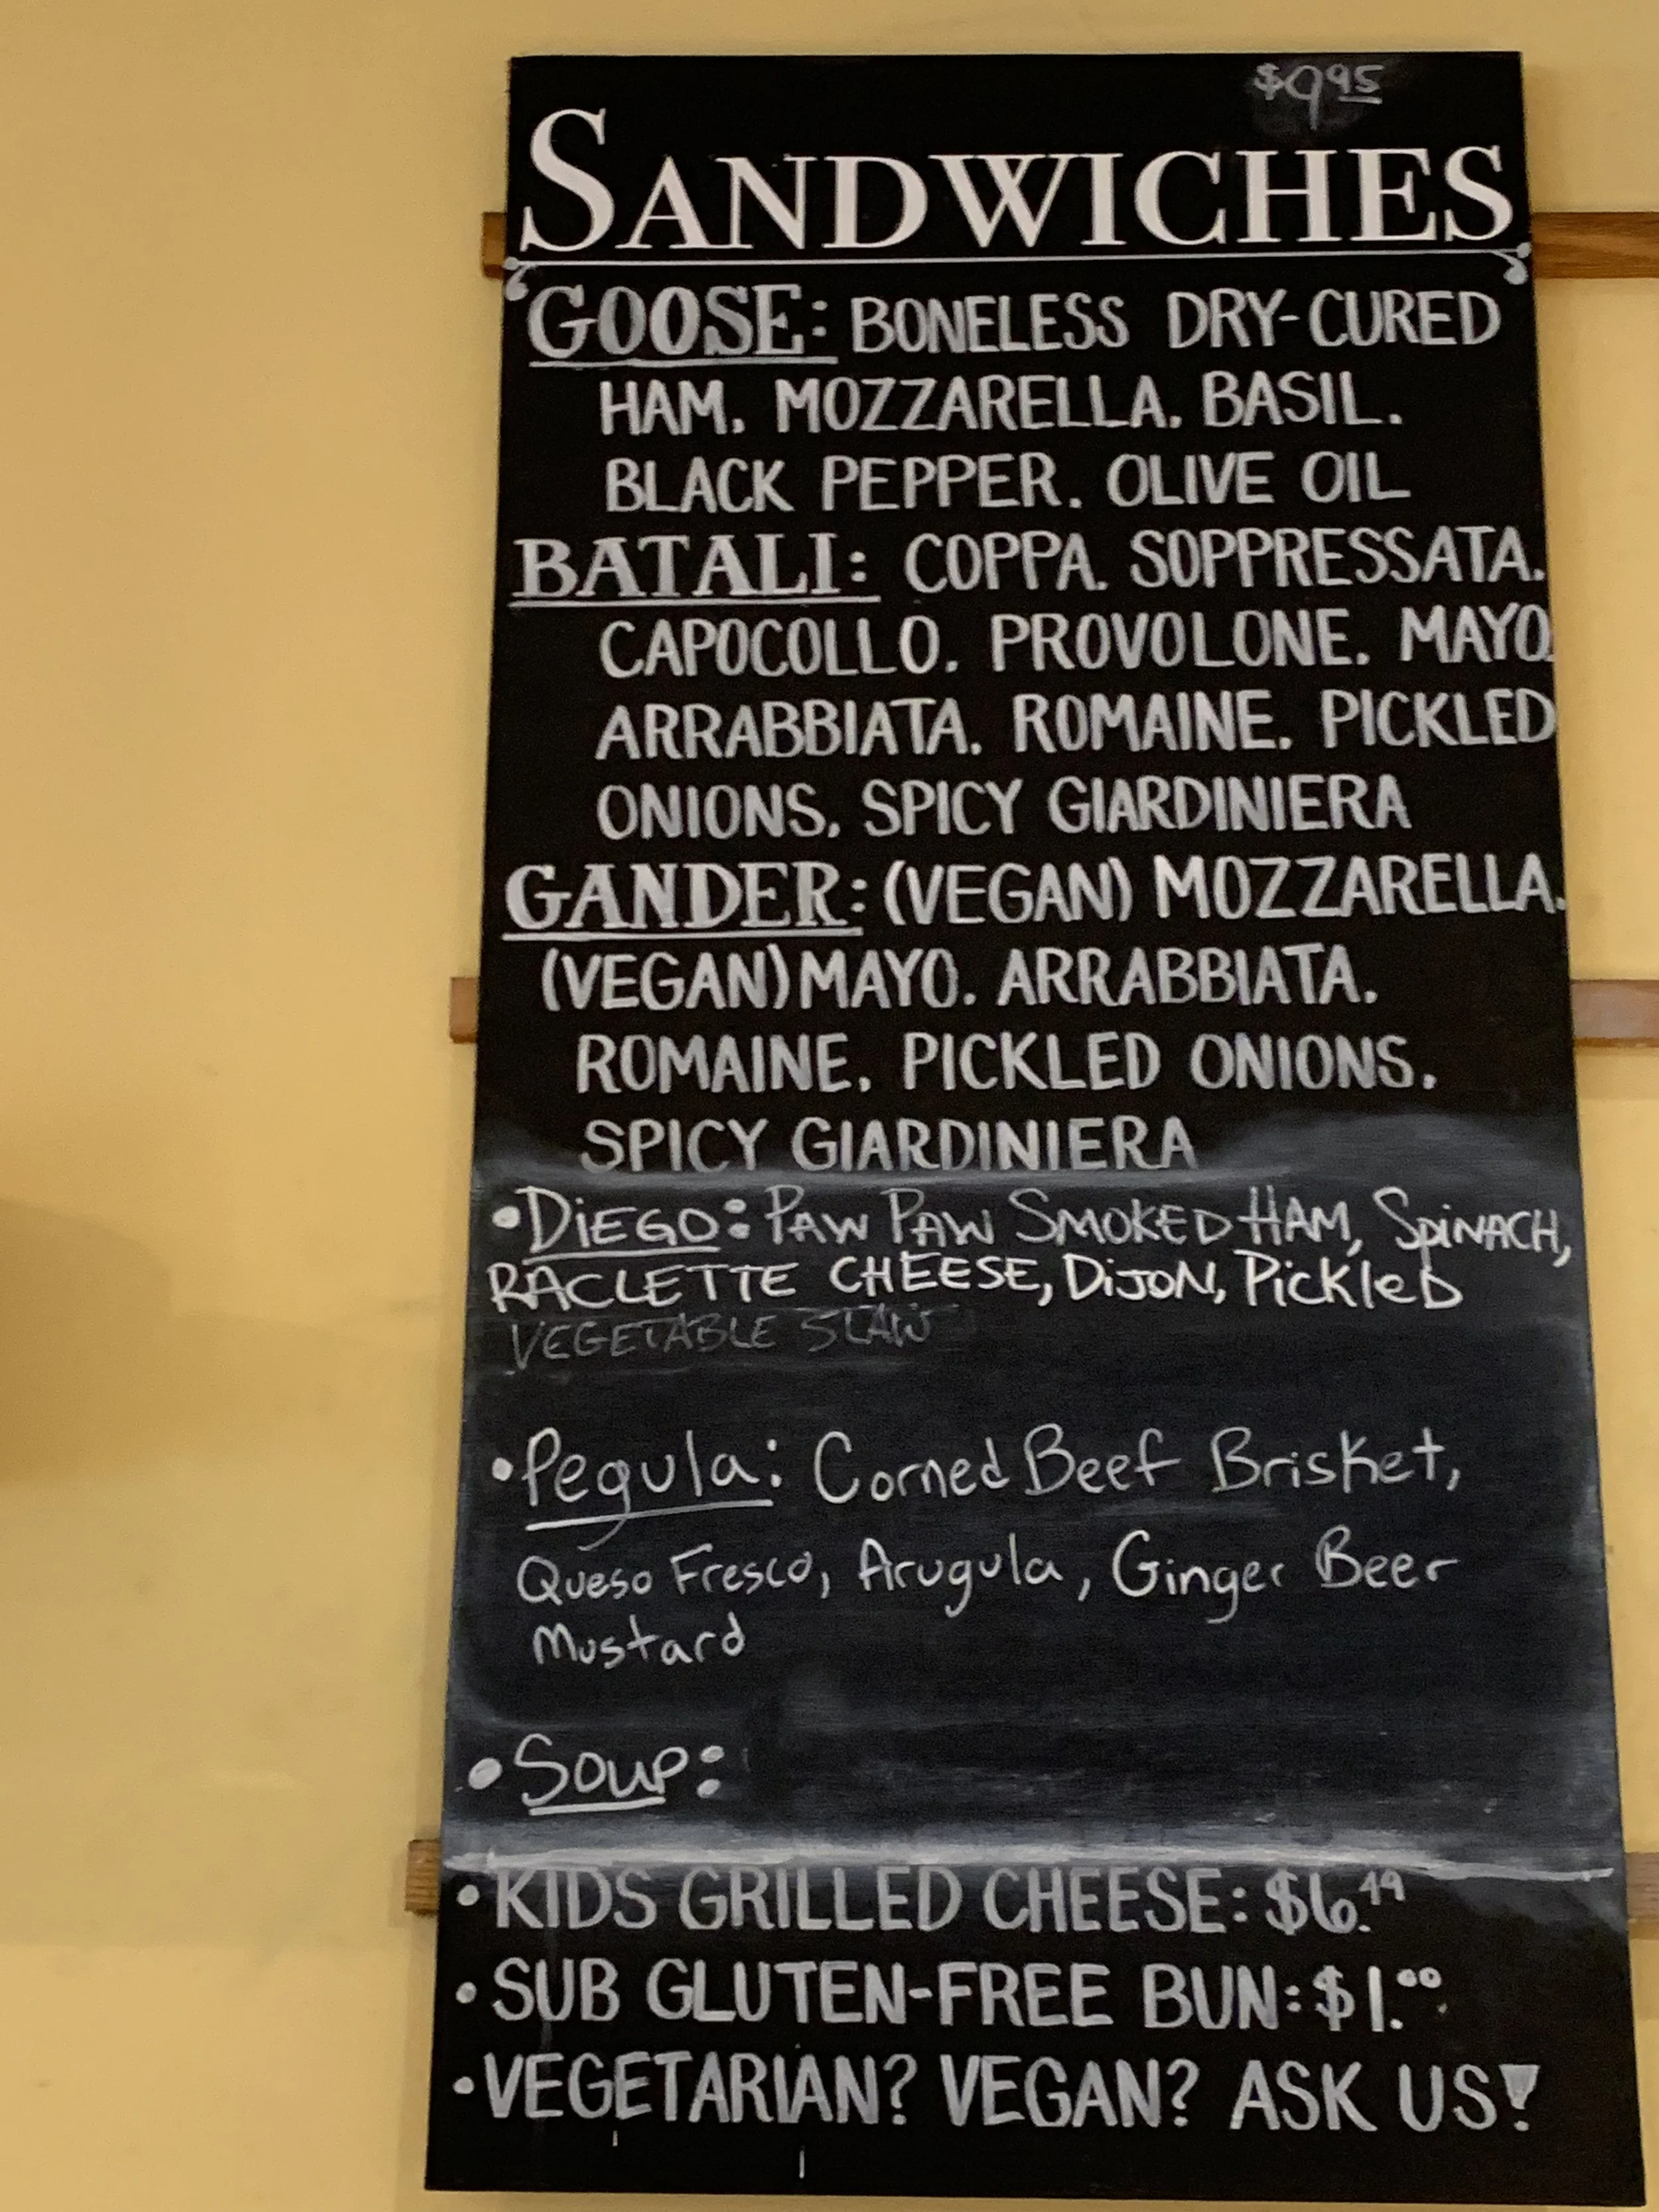 $9.95
SANDWICHES
GOOSE: BONELESS DRY-CURED
HAM. MOZZARELLA. BASIL.
BLACK PEPPER. OLIVE OIL
BATALI: COPPA. SOPPRESSATA.
CAPOCOLLO. PROVOLONE. MAYO
ARRABBIATA. ROMAINE. PICKLED
ONIONS. SPICY GIARDINIERA
GANDER: (VEGAN) MOZZARELLA.
(VEGAN) MAYO. ARRABBIATA.
ROMAINE. PICKLED ONIONS.
SPICY GIARDINIERA
•DiEGO: PAW PAW SMOKED HAM, SPiNACH,
RACLETTE CHEESE, DiJON, PickleD
VEGETABLE SLAW
•Pegula: Corned Beef Brisket,
Queso Fresco, Arugula, Ginger Beer
Mustard
•Soup:
•KIDS GRILLED CHEESE: $6.49
•SUB GLUTEN-FREE BUN: $1.00
•VEGETARIAN? VEGAN? ASK US!